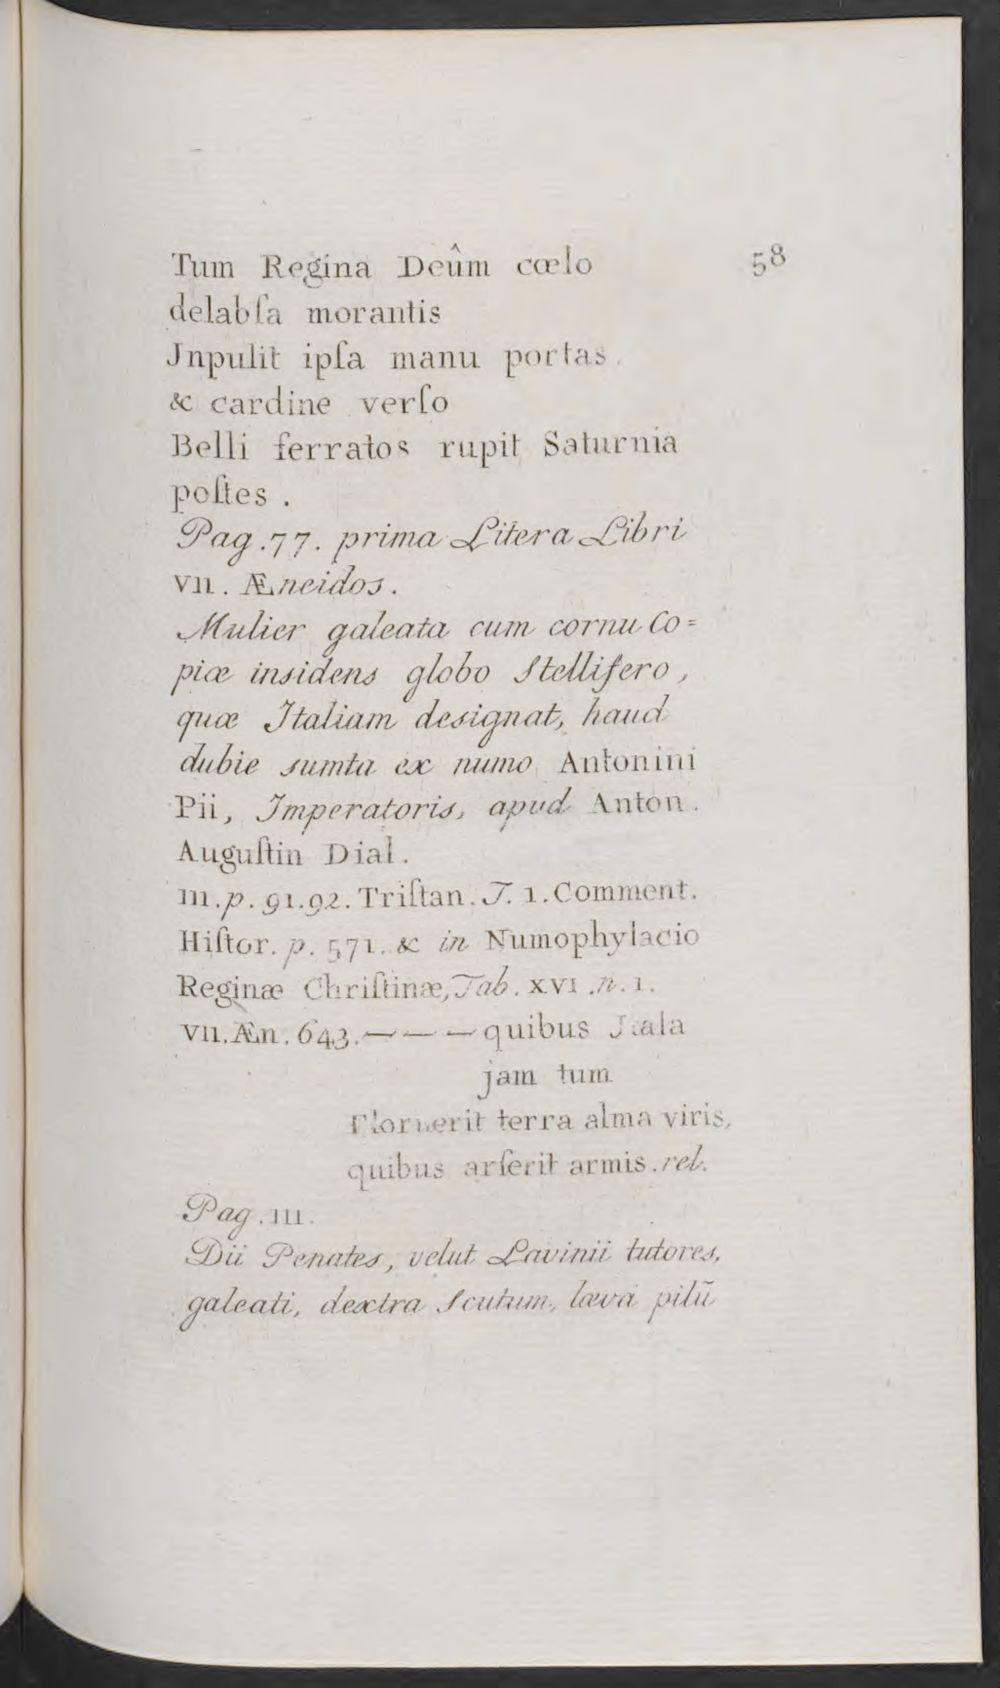 58
Tum Regina Deûm cœlo
delabſa morantis
Jnpulit ipſa manu portas,
& cardine verſo
Belli ferratos rupit Saturnia
poſtes.
Pag. 77. prima Litera Libri
VII. Æneidos.
Mulier galeata cum cornu Co=
piæ insidens globo Stellifero,
quæ Italiam designat, haud
dubie sumta ex numo Antonini
Pii, Imperatoris, apud Anton.
Auguſtin Dial.
III. p. 91.92. Triſtan. T. 1. Comment.
Hiſtor. p. 571. & in Numophylacio
Reginæ Chriſtinæ, Tab. XVI. n. 1.
VII. Æn. 643. — — — quibus Jtala
jam tum
Floruerit terra alma viris,
quibus arſerit armis. rel.
Pag. 111.
Dii Penates, velut Lavinii tutores,
galeati, dextra Scutum, læva pilũ